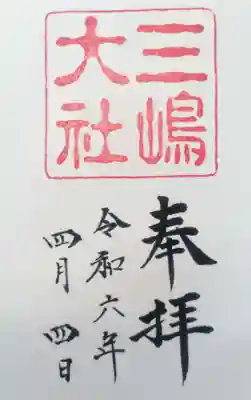 三嶋
大社
奉拝
令和六年
四月 四日